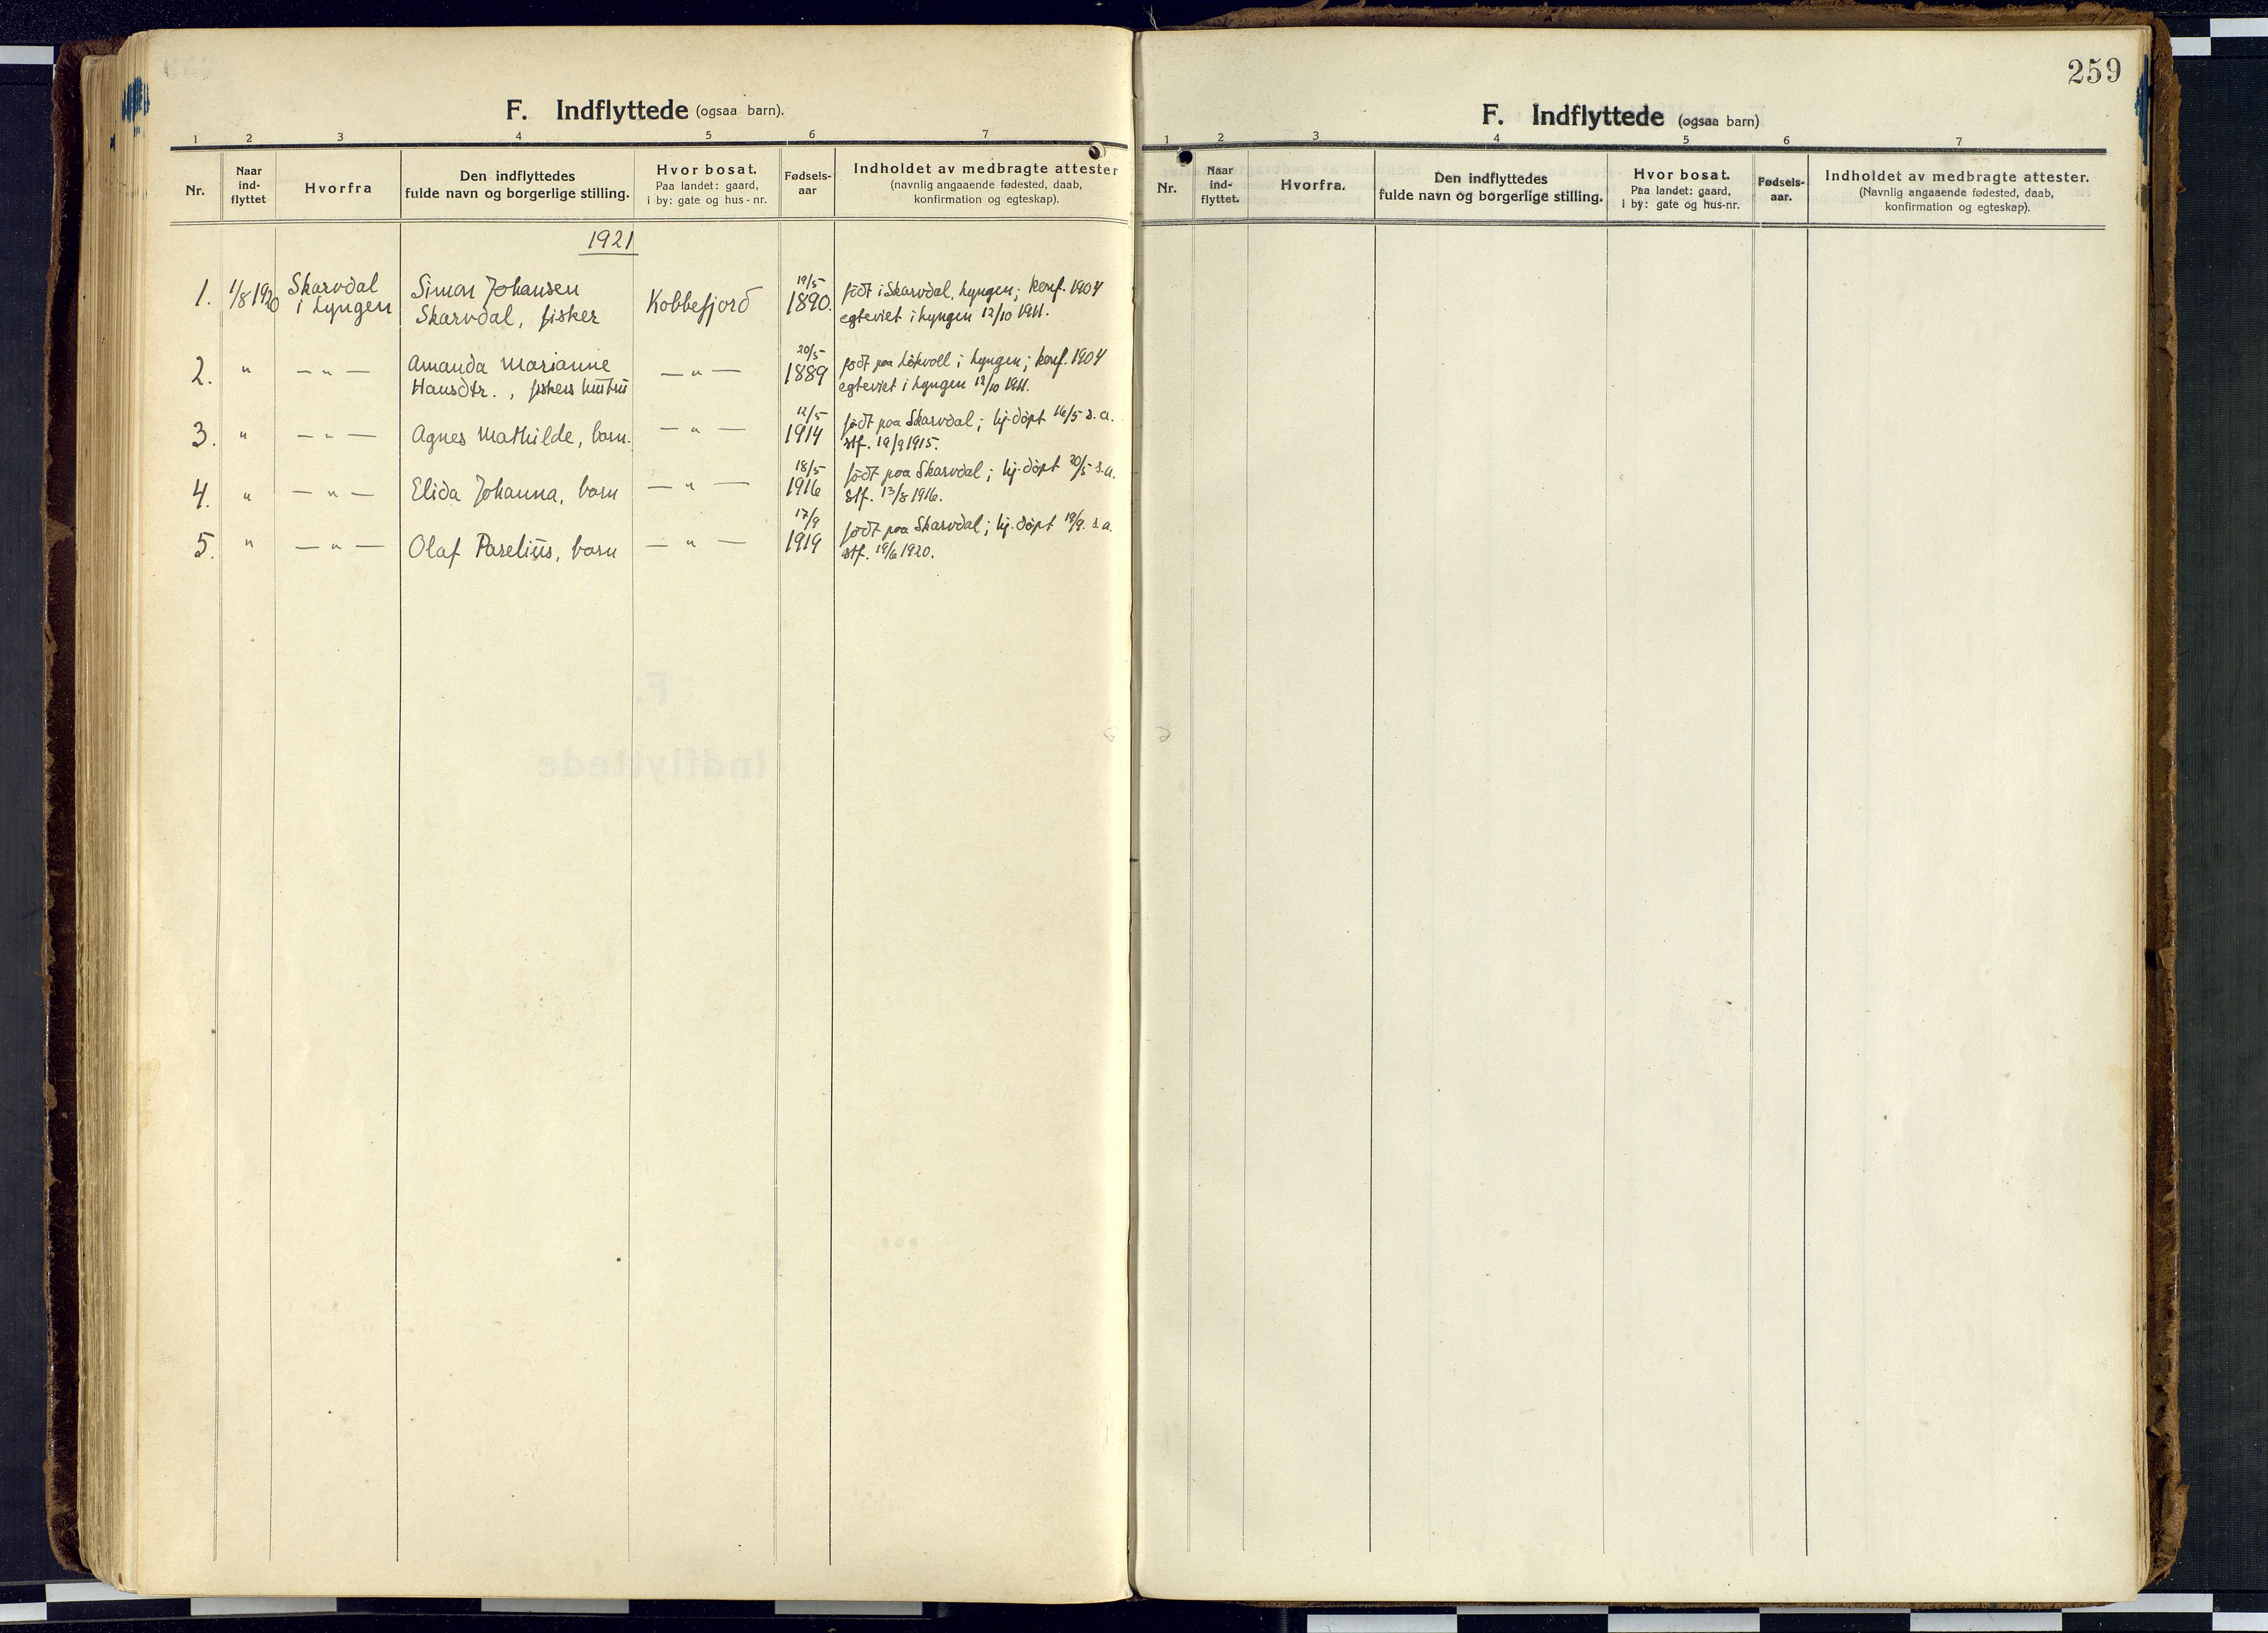 259
F. Indflyttede (ogsaa barn).
1 2 3 4 5 6 7
Nr. Naar ind-flyttet Hvorfra Den indflyttedes fulde navn og borgerlige stilling. Hvor bosat. Paa landet: gaard, i by: gate og hus-nr. Fødsels-aar Indholdet av medbragte attester (navnlig angaaende fødested, daab, konfirmation og egteskap).
1921
1. 1/8 1920 Skarvdal i Lyngen Simon Johansen Skarvdal, fisker Kobbefjord 19/5 1890. født i Skarvdal, Lyngen; konf. 1904 egteviet i Lyngen 12/10 1911.
2. " — " — Amanda Marianne Hansdtr., fiskers hustru — " — 20/5 1889 født paa Løkvoll i Lyngen; konf. 1904 egteviet i Lyngen 12/10 1911.
3. " — " — Agnes Mathilde, barn. — " — 12/5 1914 født paa Skarvdal; hj.døpt 16/5 s.a. stf. 19/9 1915.
4. " — " — Elida Johanna, barn — " — 18/5 1916 født paa Skarvdal; hj.døpt 20/5 s.a. stf. 13/8 1916.
5. " — " — Olaf Parelius, barn — " — 17/9 1919 født paa Skarvdal; hj.døpt 19/9. s.a. stf. 19/6 1920.
F. Indflyttede (ogsaa barn)
1 2 3 4 5 6 7
Nr. Naar ind-flyttet. Hvorfra. Den indflyttedes fulde navn og borgerlige stilling. Hvor bosat. Paa landet: gaard, i by: gate og hus-nr. Fødsels-aar. Indholdet av medbragte attester. (Navnlig angaaende fødested, daab, konfirmation og egteskap).